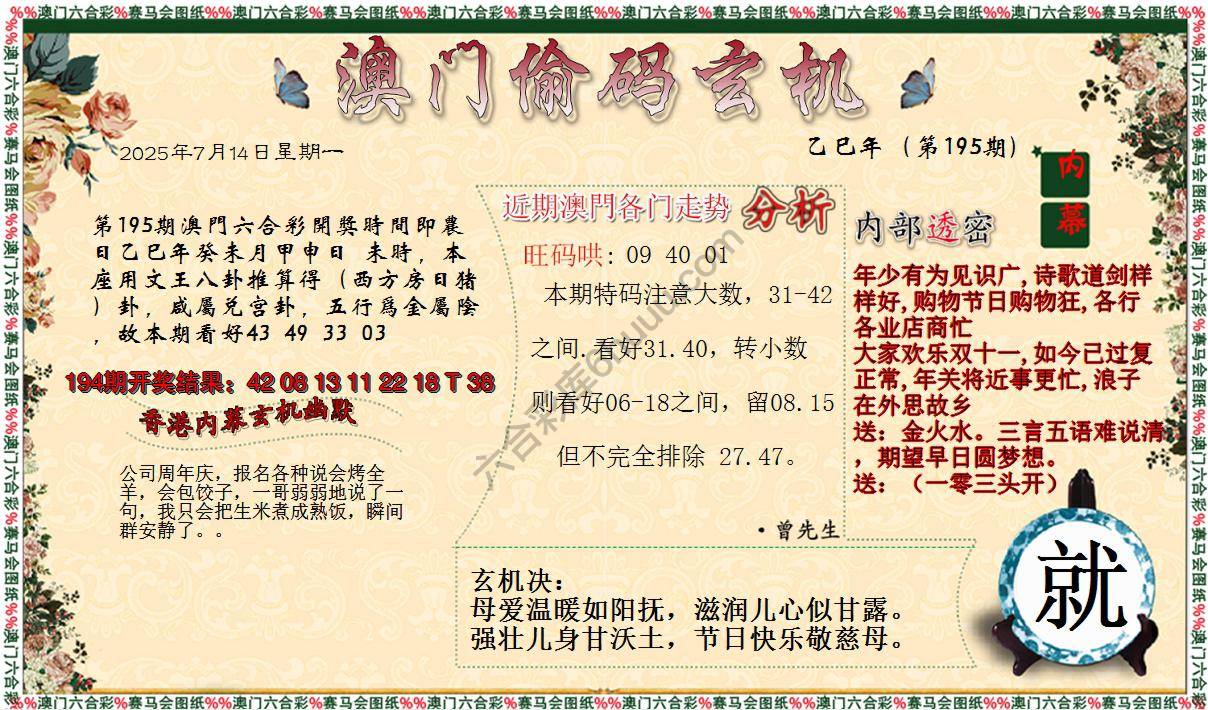 %%澳门六合彩%赛马会图纸%%澳门六合彩%赛马会图纸%%澳门六合彩%赛马会图纸%%澳门六合彩%赛马会图纸%%澳门六合彩%赛马会图纸%%澳门六合彩%赛马会图纸%%
澳门偷码玄机
2025年7月14日星期一
乙巳年（第195期）
内
幕
第195期澳門六合彩開獎時間即農
日乙巳年癸未月甲申日 未時，本
座用文王八卦推算得（西方房日猪
）卦，咸屬兑宫卦，五行爲金屬陰
，故本期看好43 49 33 03
194期开奖结果：42 08 13 11 22 18 T 38
香港内幕玄机幽默
公司周年庆，报名各种说会烤全
羊，会包饺子，一哥弱弱地说了一
句，我只会把生米煮成熟饭，瞬间
群安静了。。
近期澳門各门走势 分析
旺码哄: 09 40 01
本期特码注意大数，31-42
之间.看好31.40，转小数
则看好06-18之间，留08.15
但不完全排除 27.47。
·曾先生
内部透密
年少有为见识广,诗歌道剑样
样好,购物节日购物狂,各行
各业店商忙
大家欢乐双十一,如今已过复
正常,年关将近事更忙,浪子
在外思故乡
送：金火水。三言五语难说清
，期望早日圆梦想。
送：（一零三头开）
玄机决：
母爱温暖如阳抚，滋润儿心似甘露。
强壮儿身甘沃土，节日快乐敬慈母。
就
%%澳门六合彩%赛马会图纸%%澳门六合彩%赛马会图纸%%澳门六合彩%赛马会图纸%%澳门六合彩%赛马会图纸%%澳门六合彩%赛马会图纸%%澳门六合彩%赛马会图纸%%